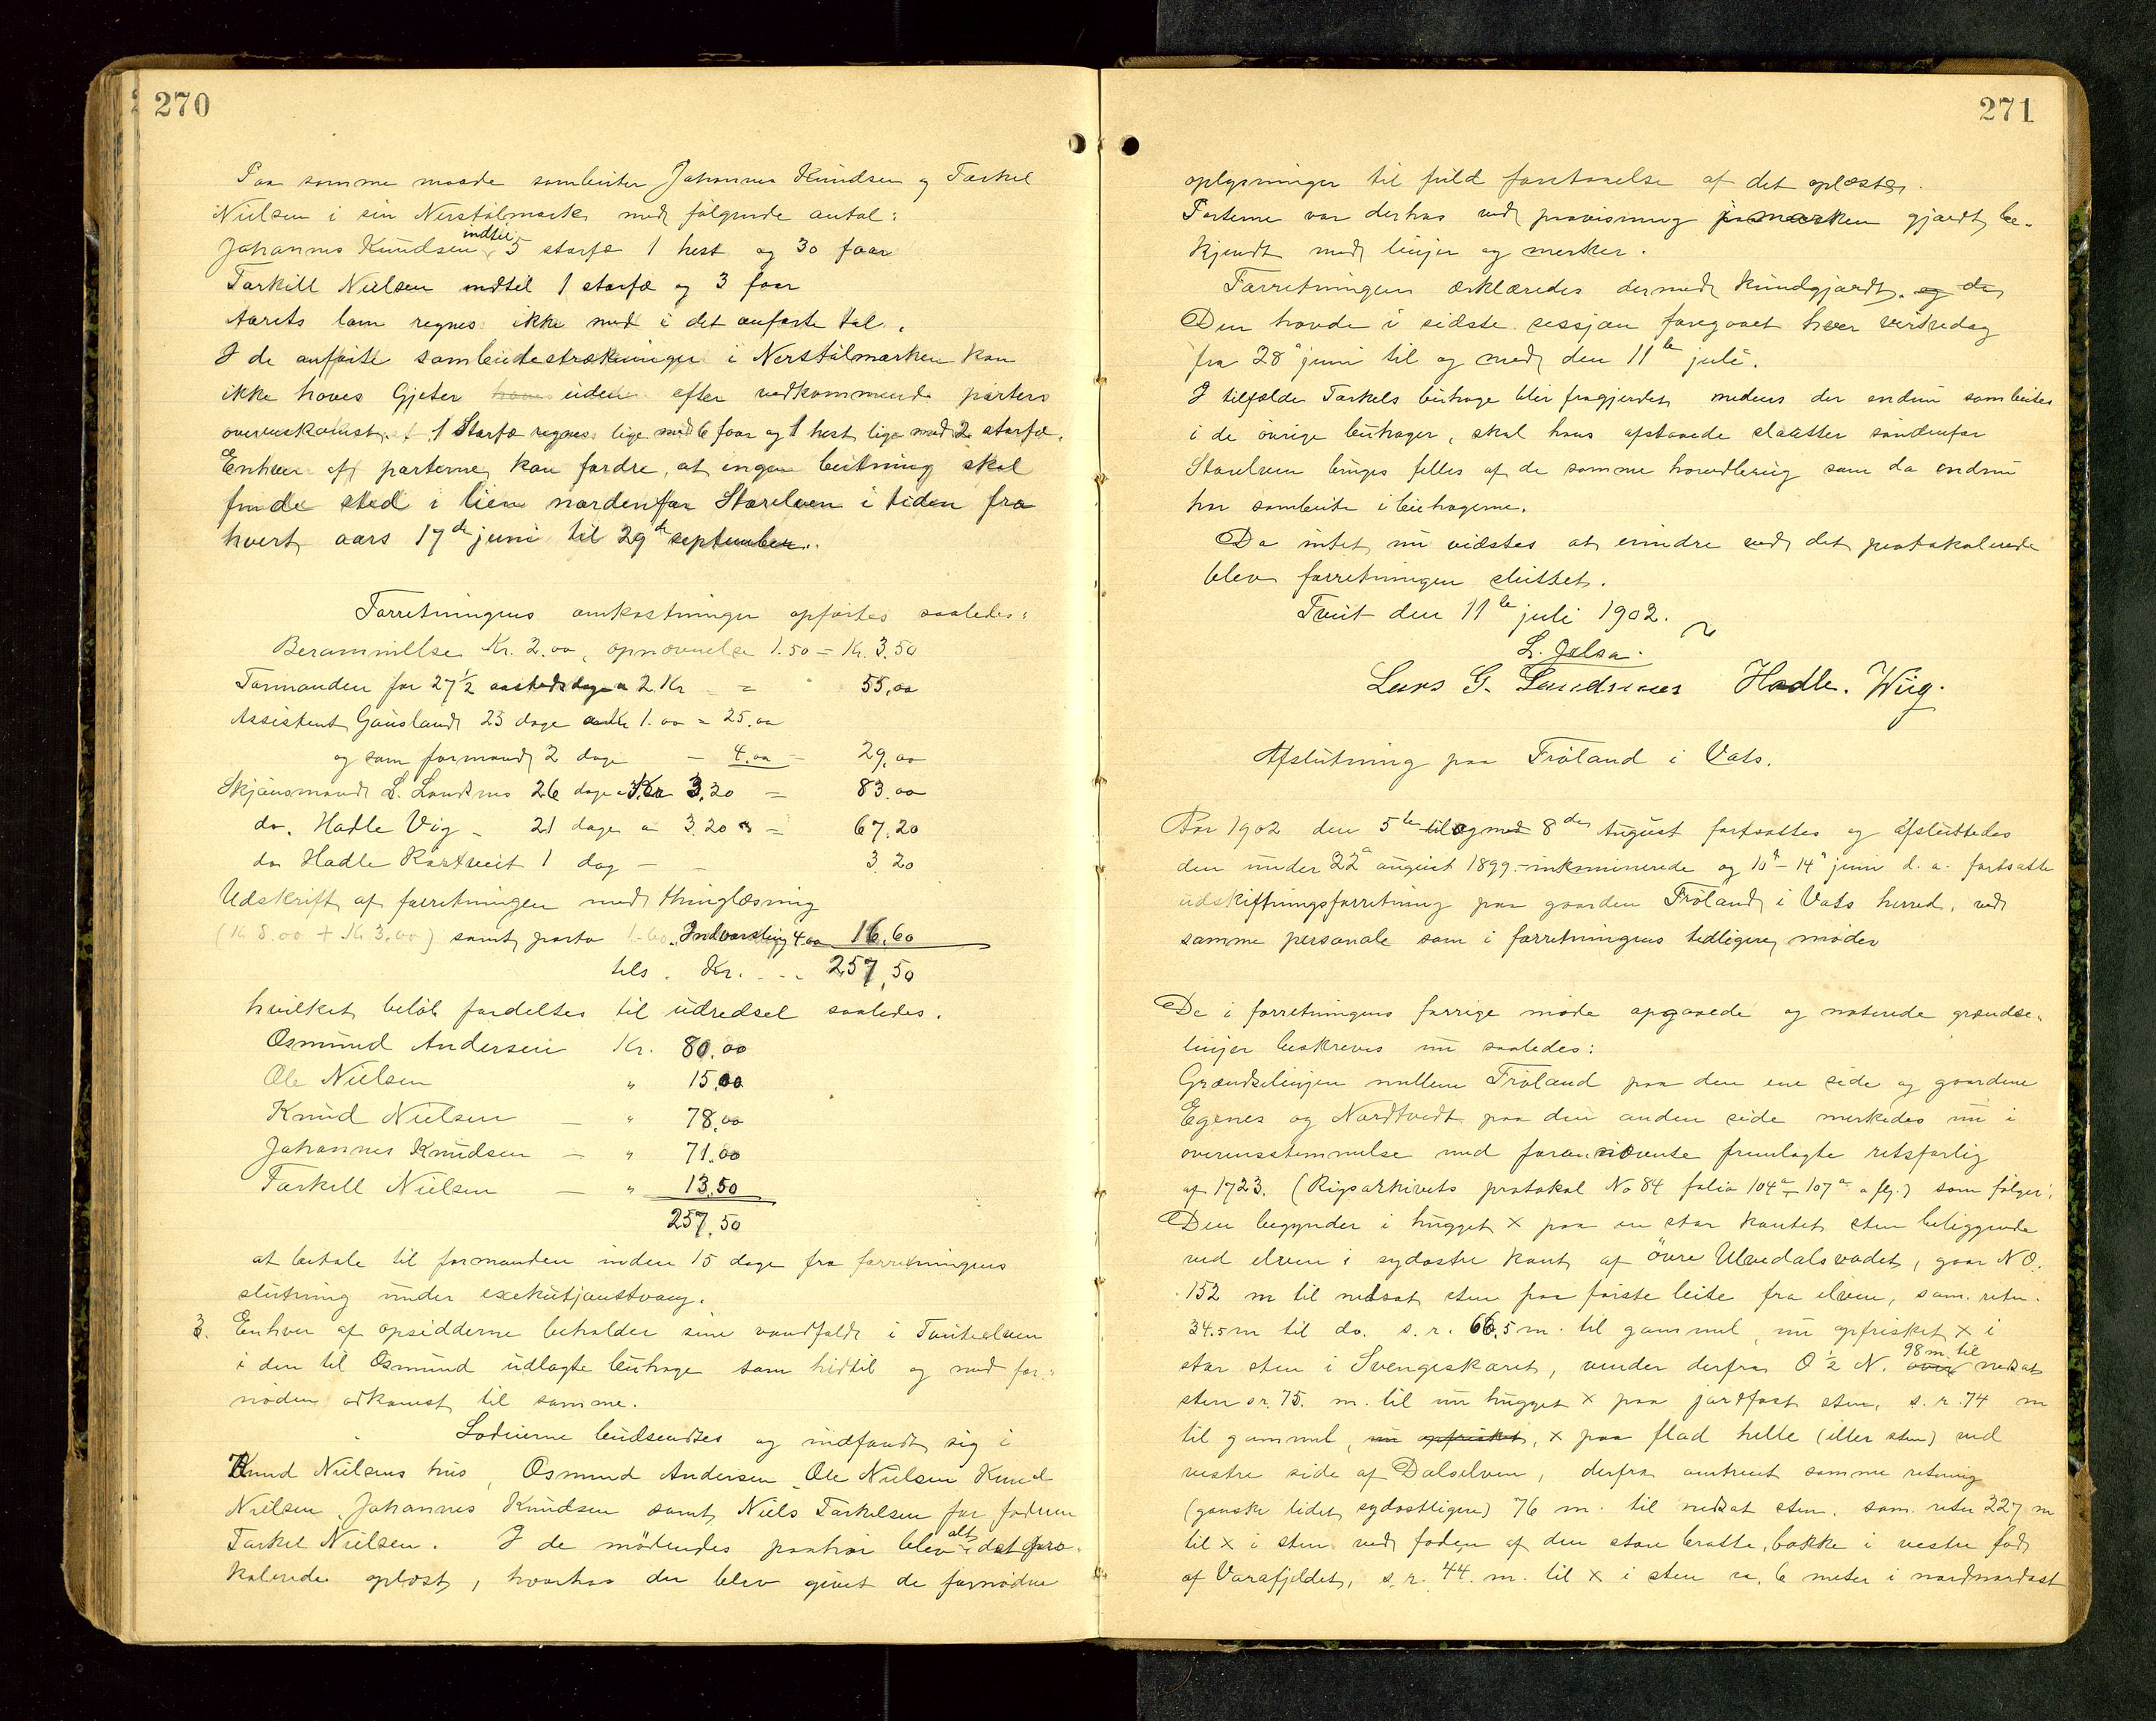 270
Paa samme maade sambeiter Johannes Knudsen og Torkel
Nielsen i sin Nerstølmark med følgende antal:
Johannes Knudsen indtil 5 storfæ 1 hest og 30 faar
Torkill Nielsen indtil 1 storfæ og 3 faar
Aarets lam regnes ikke med i det anførte tal.
I de anførte sambeitestrækninger i Nerstølmarken kan
ikke haves Gjeter uden efter vedkommende parters
overenskomst. 1 Storfæ regnes lige med 6 faar og 1 hest lige med 2 storfæ.
Enhver af parterne kan fordre, at ingen beitning skal
finde sted i lien nordenfor Storelven i tiden fra
hvert aars 17de juni til 29de september.
Forretningens omkostninger opførtes saaledes:
Berammelse Kr. 2.00, opnævnelse 1.50 = Kr. 3.50
Formanden for 27½ aastedsdage a 2 Kr = 55,00
Assistent Gausland 25 dage a Kr 1.00 = 25.00
og som formand 2 dage - 4.00 - 29,00
Skjønsmand L. Landsnes 26 dage a Kr 3,20 = 83.00
do. Hadle Vig - 21 dage a 3.20 = 67,20
do Hadle Kartveit 1 dag - 3 20
Udskrift af forretningen med thinglæsning
(Kr 8.00 + Kr 3.00) samt porto 1.60. Indvarsling 4 00 16,60
tils. Kr. ... 257,50
hvilket beløb fordeltes til udredsel saaledes.
Osmund Andersen Kr. 80.00
Ole Nielsen " 15,00
Knud Nielsen - " 78,00
Johannes Knudsen - " 71.00
Torkell Nielsen - " 13,50
257,50
at betale til formanden inden 15 dage fra forretningens
slutning under exekutjonstvang.
3. Enhver af opsidderne beholder sine vandfald i Tveitelven
i den til Osmund udlagte beitehage som hidtil og med for-
nøden adkomst til samme.
Lodeierne budsendtes og indfandt sig i
Knud Nielsens hus, Osmund Andersen, Ole Nielsen Knud
Nielsen, Johannes Knudsen samt Niels Torkelsen for faderen
Torkel Nielsen. I de mødendes paahør blev alt det pro-
kolerede oplæst, hvorhos der blev givet de fornødne
271
oplysninger til fuld forstaaelse af det oplæste.
Parterne var derhos ved paavisning i marken gjordt be-
kjendt med linjer og merker.
Forretningen erklæredes dermed kundgjordt. og de
Den havde i sidste sessjon foregaaet hver virkedag
fra 28de juni til og med den 11te juli.
I tilfælde Torkels beitehage blir fragjerdet medens der endnu sambeites
i de øvrige beitehager, skal hans afstaaede slaatter søndenfor
Storelven bruges felles af de samme som da endnu
har sambeite i beitehagerne.
Da intet nu vidstes at erindre ved det protokolerede
blev forretningen sluttet.
Tveit den 11te juli 1902.
L. Jelsa.
Lars G. Landsnes Hadle. Wiig.
Afslutning paa Frøland i Vats.
Aar 1902 den 5te til og med 8de August fortsattes og afsluttedes
den under 22de august 1899 inkaminerede og 10de - 14de juni d. a. fortsatte
udskiftningsforretning paa gaarden Frøland i Vats herred, ved
samme personale som i forretningens tidligere møder
De i forretningens forrige møde opgaaede og noterede grændse-
linjer beskrives nu saaledes:
Grændselinjen mellem Frøland paa den ene side og gaardene
Egenes og Nordtvedt paa den anden side merkedes nu i
overensstemmelse med forannævnte fremlagte retsforlig
af 1723. (Rigsarkivets protokol No 84 folio 104a - 107a o flg.) som følger:
Den begynder i hugget x paa en stor kantet sten beliggende
ved elven i sydostre kant af øvre Ulvedalsvadet, gaar N O.
152 m til nedsat sten paa første leite fra elven, sam. retn.
34.5 m til do. s. r. 66,5 m. til gammel, nu opfrisket x i
stor sten i Svengeskaret, vender derfra O ½ N. over 98 m. til nedsat
sten s r. 75. m. til nu hugget x paa jordfast sten, s. r. 74 m
til gammel, nu opfrisket, x paa flad helle (eller sten) ved
vestre side af Dalselven, derfra omtrent samme retning
(ganske lidet sydostligere) 76 m. til nedsat sten. sam. retn 227 m
til x i sten ved foden af den store bratte bakke i vestre fod
af Varafjeldet, s. r. 44. m. til x i sten ca. 6 meter i nordnordost